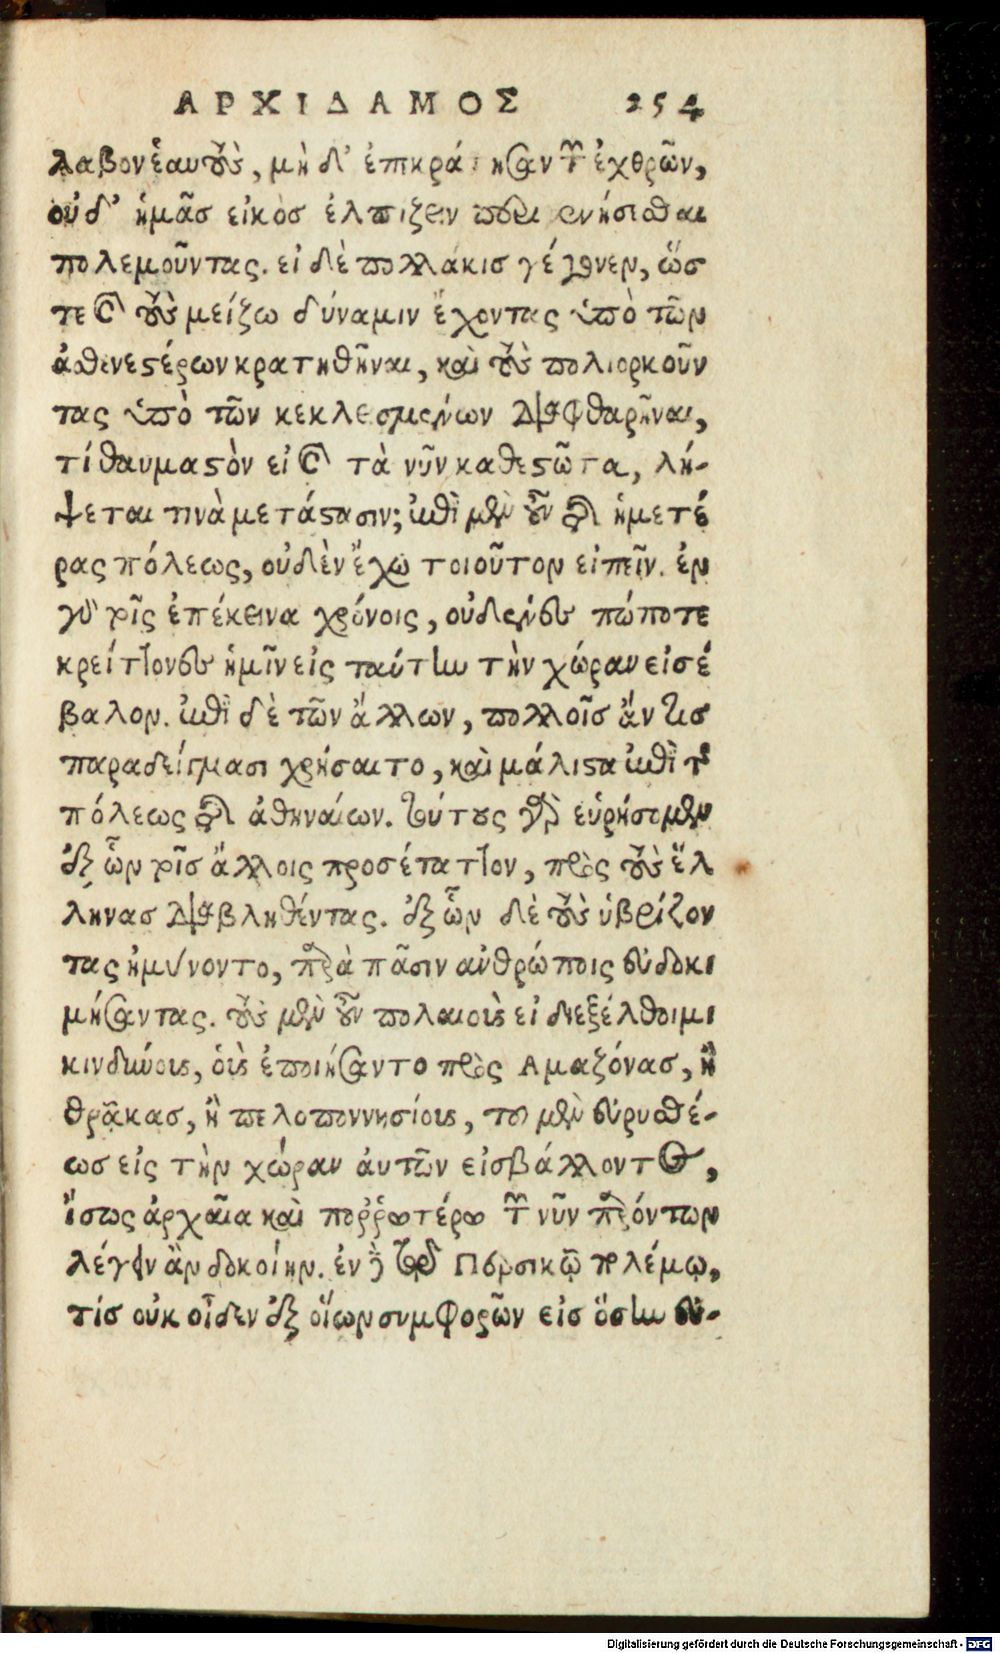 ΑΡΧΙΔΑΜΟΣ 254
λαβον ἑαυτοὺς, μὴ δ᾽ ἐπικράτησαν τῶν ἐχθρῶν,
οὐδ᾽ ἡμᾶς εἰκὸς ἐλπίζειν περιγενήσεσθαι
πολεμοῦντας. εἰ δὲ πολλάκις γέγονεν, ὥς
τε καὶ τοὺς μείζω δύναμιν ἔχοντας ὑπὸ τῶν
ἀσθενεστέρων κρατηθῆναι, καὶ τοὺς πολιορκοῦν
τας ὑπὸ τῶν κεκλεισμένων διαφθαρῆναι,
τί θαυμαστὸν εἰ καὶ τὰ νῦν καθεστῶτα, λή-
ψεταί τινα μετάστασιν; ἐπὶ μὲν οὖν τῆς ἡμετέ
ρας πόλεως, οὐδὲν ἔχω τοιοῦτον εἰπεῖν. ἐν
γὰρ τοῖς ἐπέκεινα χρόνοις, οὐδένες πώποτε
κρείττονες ἡμῖν εἰς ταύτην τὴν χώραν εἰσέ
βαλον. ἐπὶ δὲ τῶν ἄλλων, πολλοῖς ἄν τις
παραδείγμασι χρήσαιτο, καὶ μάλιστα ἐπὶ τῆς
πόλεως τῆς ἀθηναίων. τούτους γὰρ εὑρήσομεν
ἐξ ὧν τοῖς ἄλλοις προσέταττον, πρὸς τοὺς ἕλ
ληνας διαβληθέντας. ἐξ ὧν δὲ τοὺς ὑβρίζον
τας ἠμύνοντο, παρὰ πᾶσιν ἀνθρώποις εὐδοκι
μήσαντας. τοὺς μὲν οὖν παλαιοὺς εἰ διεξέλθοιμι
κινδύνους, οὓς ἐποιήσαντο πρὸς Ἀμαζόνας, ἢ
θρᾷκας, ἢ πελοποννησίους, τοὺς μετ᾽ εὐρυσθέ-
ως εἰς τὴν χώραν αὐτῶν εἰσβάλλοντας,
ἴσως ἀρχαῖα καὶ πορρωτέρω τῶν νῦν παρόντων
λέγειν ἂν δοκοίην. ἐν δὲ τῷ Περσικῷ πολέμῳ,
τίς οὐκ οἶδεν ἐξ οἵων συμφορῶν εἰς ὅσην εὐ-
Digitalisierung gefördert durch die Deutsche Forschungsgemeinschaft - DFG